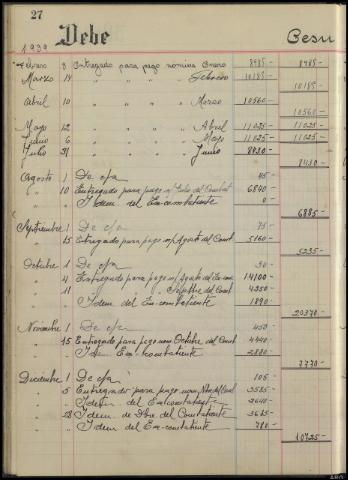 27
1939 Debe Cesu
Enero 8 Entregado para pago nomina Enero 8985- 8985-
Marzo 14 " " " " Febrero 10185-
10185-
Abril 10 " " " " Marzo 10560-
10560-
Mayo 12 " " " " Abril 11025- 11025-
Junio 6 " " " " Mayo 11025- 11025-
Julio 31 " " " " Junio 8430-
8430-
Agosto 1 De c/a 45-
" 10 Entregado para pago n/ Julio del Combat 6840
" " Idem del Ex-combatiente 0-
6885-
Septiembre 1 De c/a 75-
" 15 Entregado para pago n/ Agosto del Comt 5160-
5235-
Octubre 1 De c/a 30-
" 4 Entregado para pago n/ Agosto del Ex-com 14100-
" 11 " " " Septbre del Comt 4350-
" " Idem del Ex-combatiente 1890-
20370-
Noviembre 1 De c/a 450-
" 15 Entregado para pago nom Octubre del Comt 4440-
" " Idem Ex-combatiente 2880-
7770-
Diciembre 1 De c/a 105-
" 5 Entregado para pago nom Nbre del Comt 3585-
" " Idem del Excombatiente
" Idem de Dbre del Combatiente 3615-
" " Idem del Ex-combatiente 780-
10725-